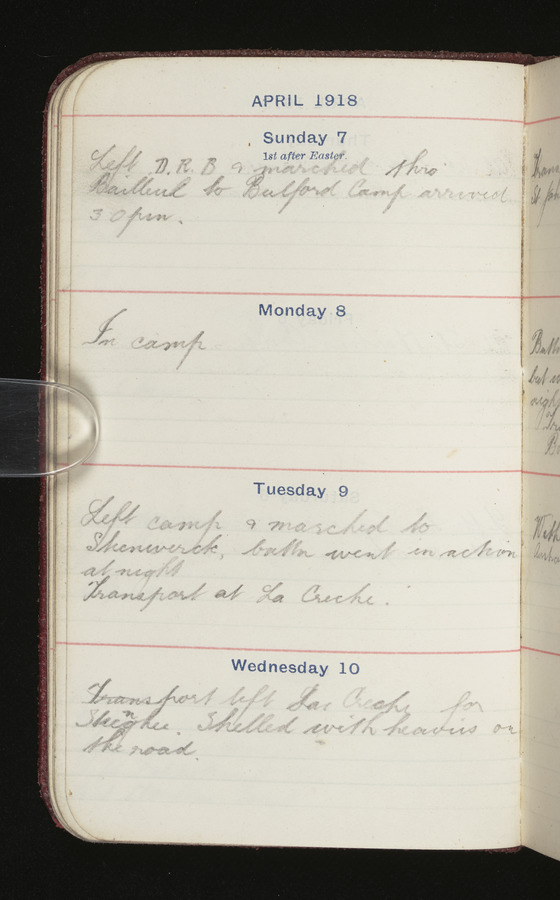 APRIL 1918
Sunday 7
1st after Easter.
Left D.R.B & marched thro
Bailleul to Bulford Camp arrived
3 0 pm.
Monday 8
In camp
Tuesday 9
Left camp & marched to
Steenwerck, battn went in action
at night
Transport at La Creche.
Wednesday 10
Transport left La Creche for
Shelled with heavies on
the road.